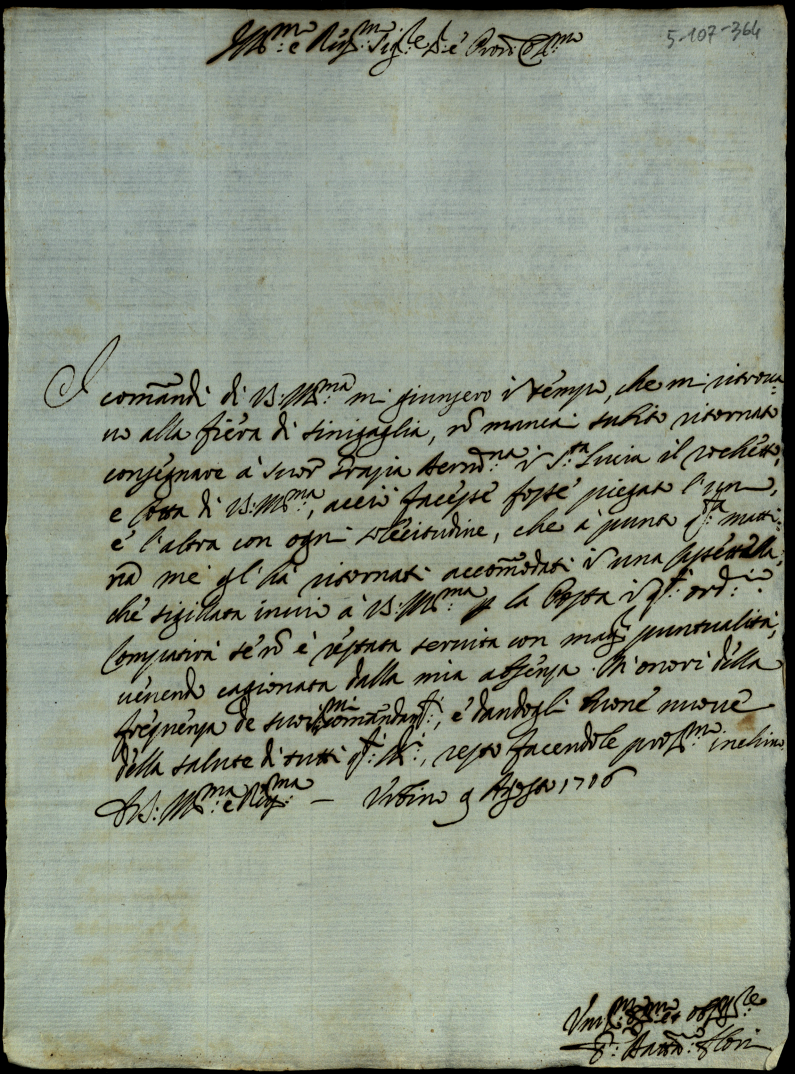 Ill:mo e Rev:mo Sig:re e Pron Col:mo
5-107-364
I comandi di V.S. Ill:ma mi giunsero in tempo, che mi ritrova-
vo alla fiera di Sinigaglia, nõ mancai subito ritornato
consegnare à Suor Grazia Bernd:na in S:ta Lucia il rochetto,
e Cotta di V.S. Ill:ma, acciò facesse fosse piegat l'un,
è l'altra con ogni solecitudine, che à punt q:ta matti-
na me gl'hà ritornati accommodati in una
che sigillata invio à V.S. Ill:ma p la Posta in q:to ord:rio
Compatirà se nõ è restata servita con magg puntualità,
venendo cagionata dalla mia absenza. M'onori della
frequenza de suoi comandam:ti, è dandogli buone nuove
della salute di tutti q:ti, resto facendole prof:ma inchino
Di V.S. Ill:ma e Rev:ma — Urbino 9 Agosto 1706
Um:o et obl: